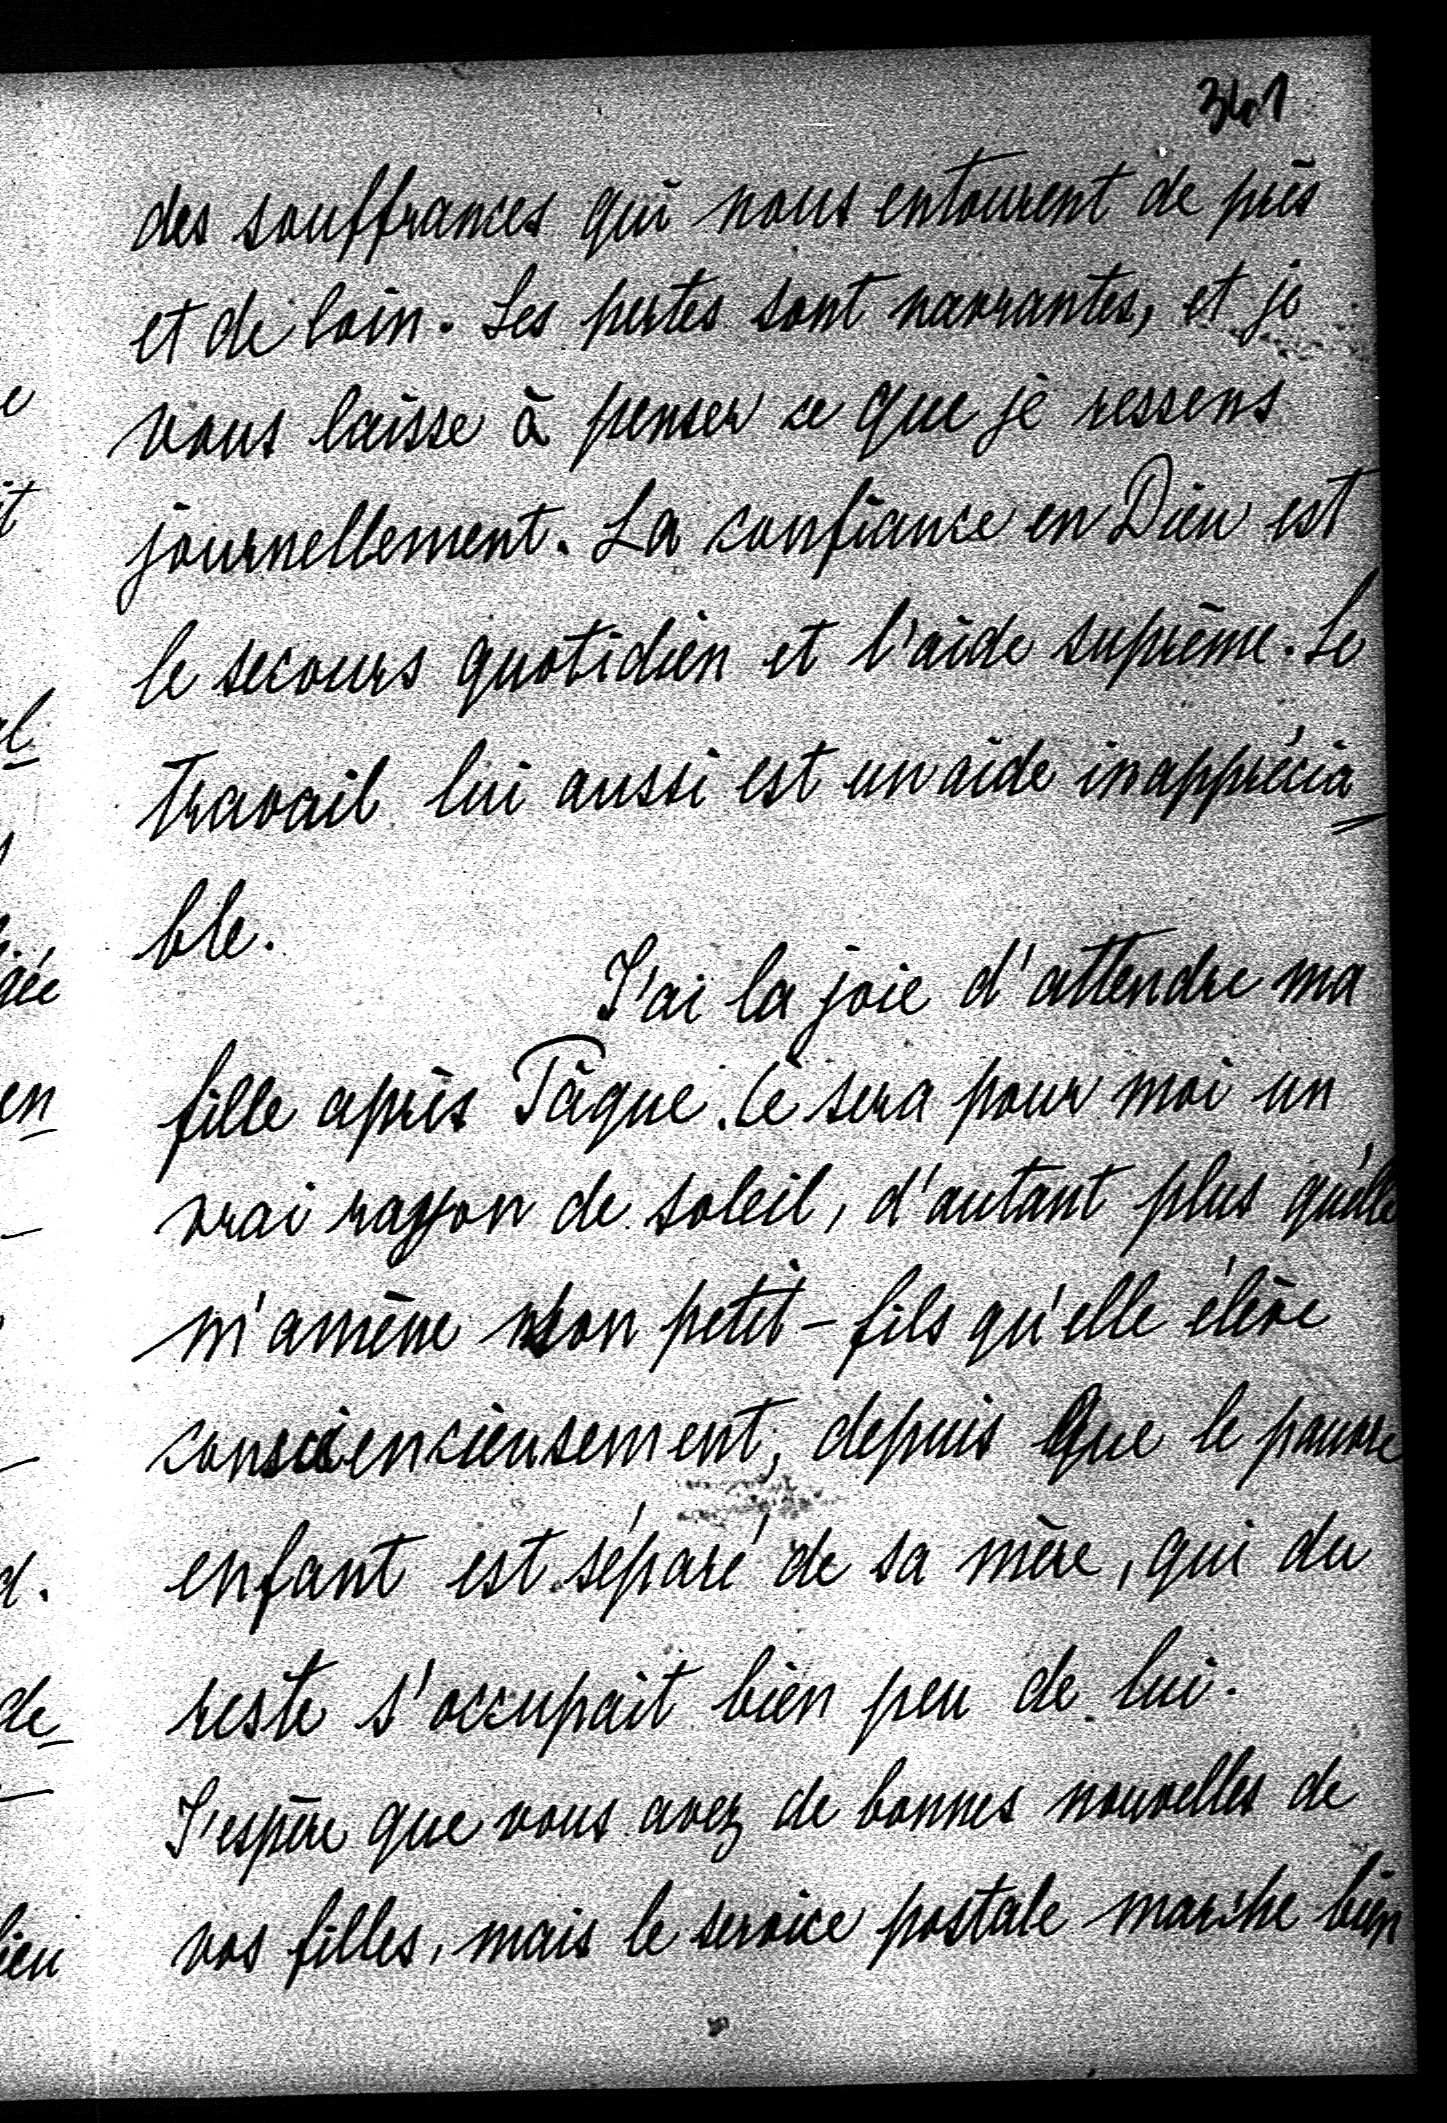 341
des souffrances qui nous entourent de près
et de loin. Les pertes sont navrantes, et je
vous laisse à penser ce que je ressens
journellement. La confiance en Dieu est
le secours quotidien et l'aide suprème. Le
travail lui aussi est un aide inapprécia
ble.
J'ai la joie d'attendre ma
fille après Pâque. Ce sera pour moi un
vrai rayon de soleil, d'autant plus qu'elle
m'amène mon petit-fils qu'elle élève
consciencieusement, depuis que le pauvre
enfant est séparé de sa mère, qui du
reste s'occupait bien peu de lui.
J'espère que vous avez de bonnes nouvelles de
vos filles, mais le service postale marche bien